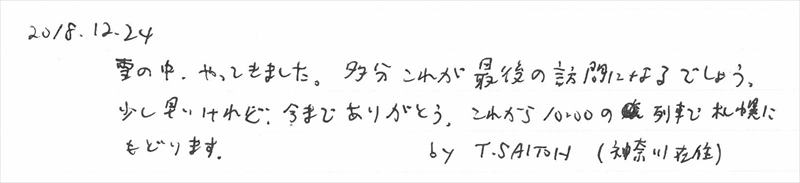 2018.12.24
雪の中、やってきました。多分これが最後の訪問になるでしょう。
少し早いけれど、今までありがとう。これから10:00の列車で札幌に
もどります。
by T.SAITOH (神奈川在住)